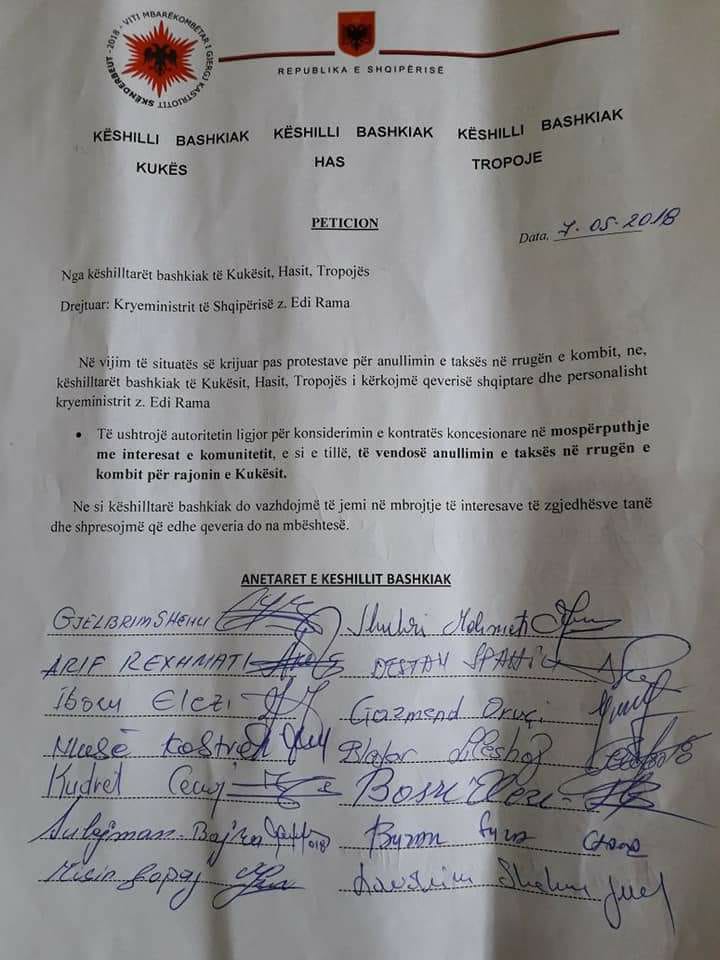 2018 - VITI MBARËKOMBËTAR I GJERGJ KASTRIOTIT SKËNDERBEUT -
REPUBLIKA E SHQIPËRISË
KËSHILLI BASHKIAK KËSHILLI BASHKIAK KËSHILLI BASHKIAK
KUKËS HAS TROPOJE
PETICION
Data. 7.05.2018
Nga këshilltarët bashkiak të Kukësit, Hasit, Tropojës
Drejtuar: Kryeministrit të Shqipërisë z. Edi Rama
Në vijim të situatës së krijuar pas protestave për anullimin e taksës në rrugën e kombit, ne,
këshilltarët bashkiak të Kukësit, Hasit, Tropojës i kërkojmë qeverisë shqiptare dhe personalisht
kryeministrit z. Edi Rama
• Të ushtrojë autoritetin ligjor për konsiderimin e kontratës koncesionare në mospërputhje
me interesat e komunitetit, e si e tillë, të vendosë anullimin e taksës në rrugën e
kombit për rajonin e Kukësit.
Ne si këshilltarë bashkiak do vazhdojmë të jemi në mbrojtje të interesave të zgjedhësve tanë
dhe shpresojmë që edhe qeveria do na mbështesë.
ANETARET E KESHILLIT BASHKIAK
GJELBRIM SHEHU Shukri Mehmeti
ARIF REXHMATI DESTAN SPAHIU
Elezi Gazmend Oruçi
Musë
Kudret
Sulejman Bajra
Shehu